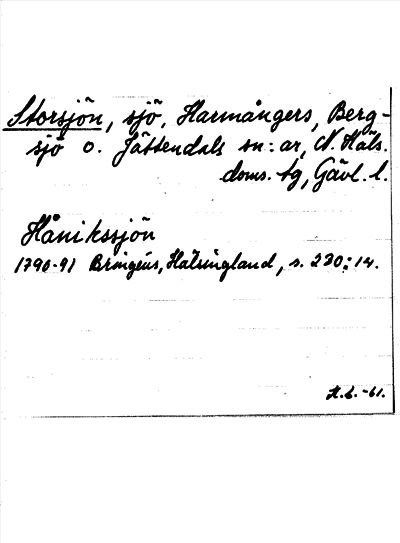 Storsjön, sjö, Harmångers, Berg-
sjö o. Jättendals sn:ar, N. Häls.
doms. tg, Gävl. l.
Hånikssjön
1790-91 Bringéus, Hälsingland, s. 230:14.
H.L. -61.